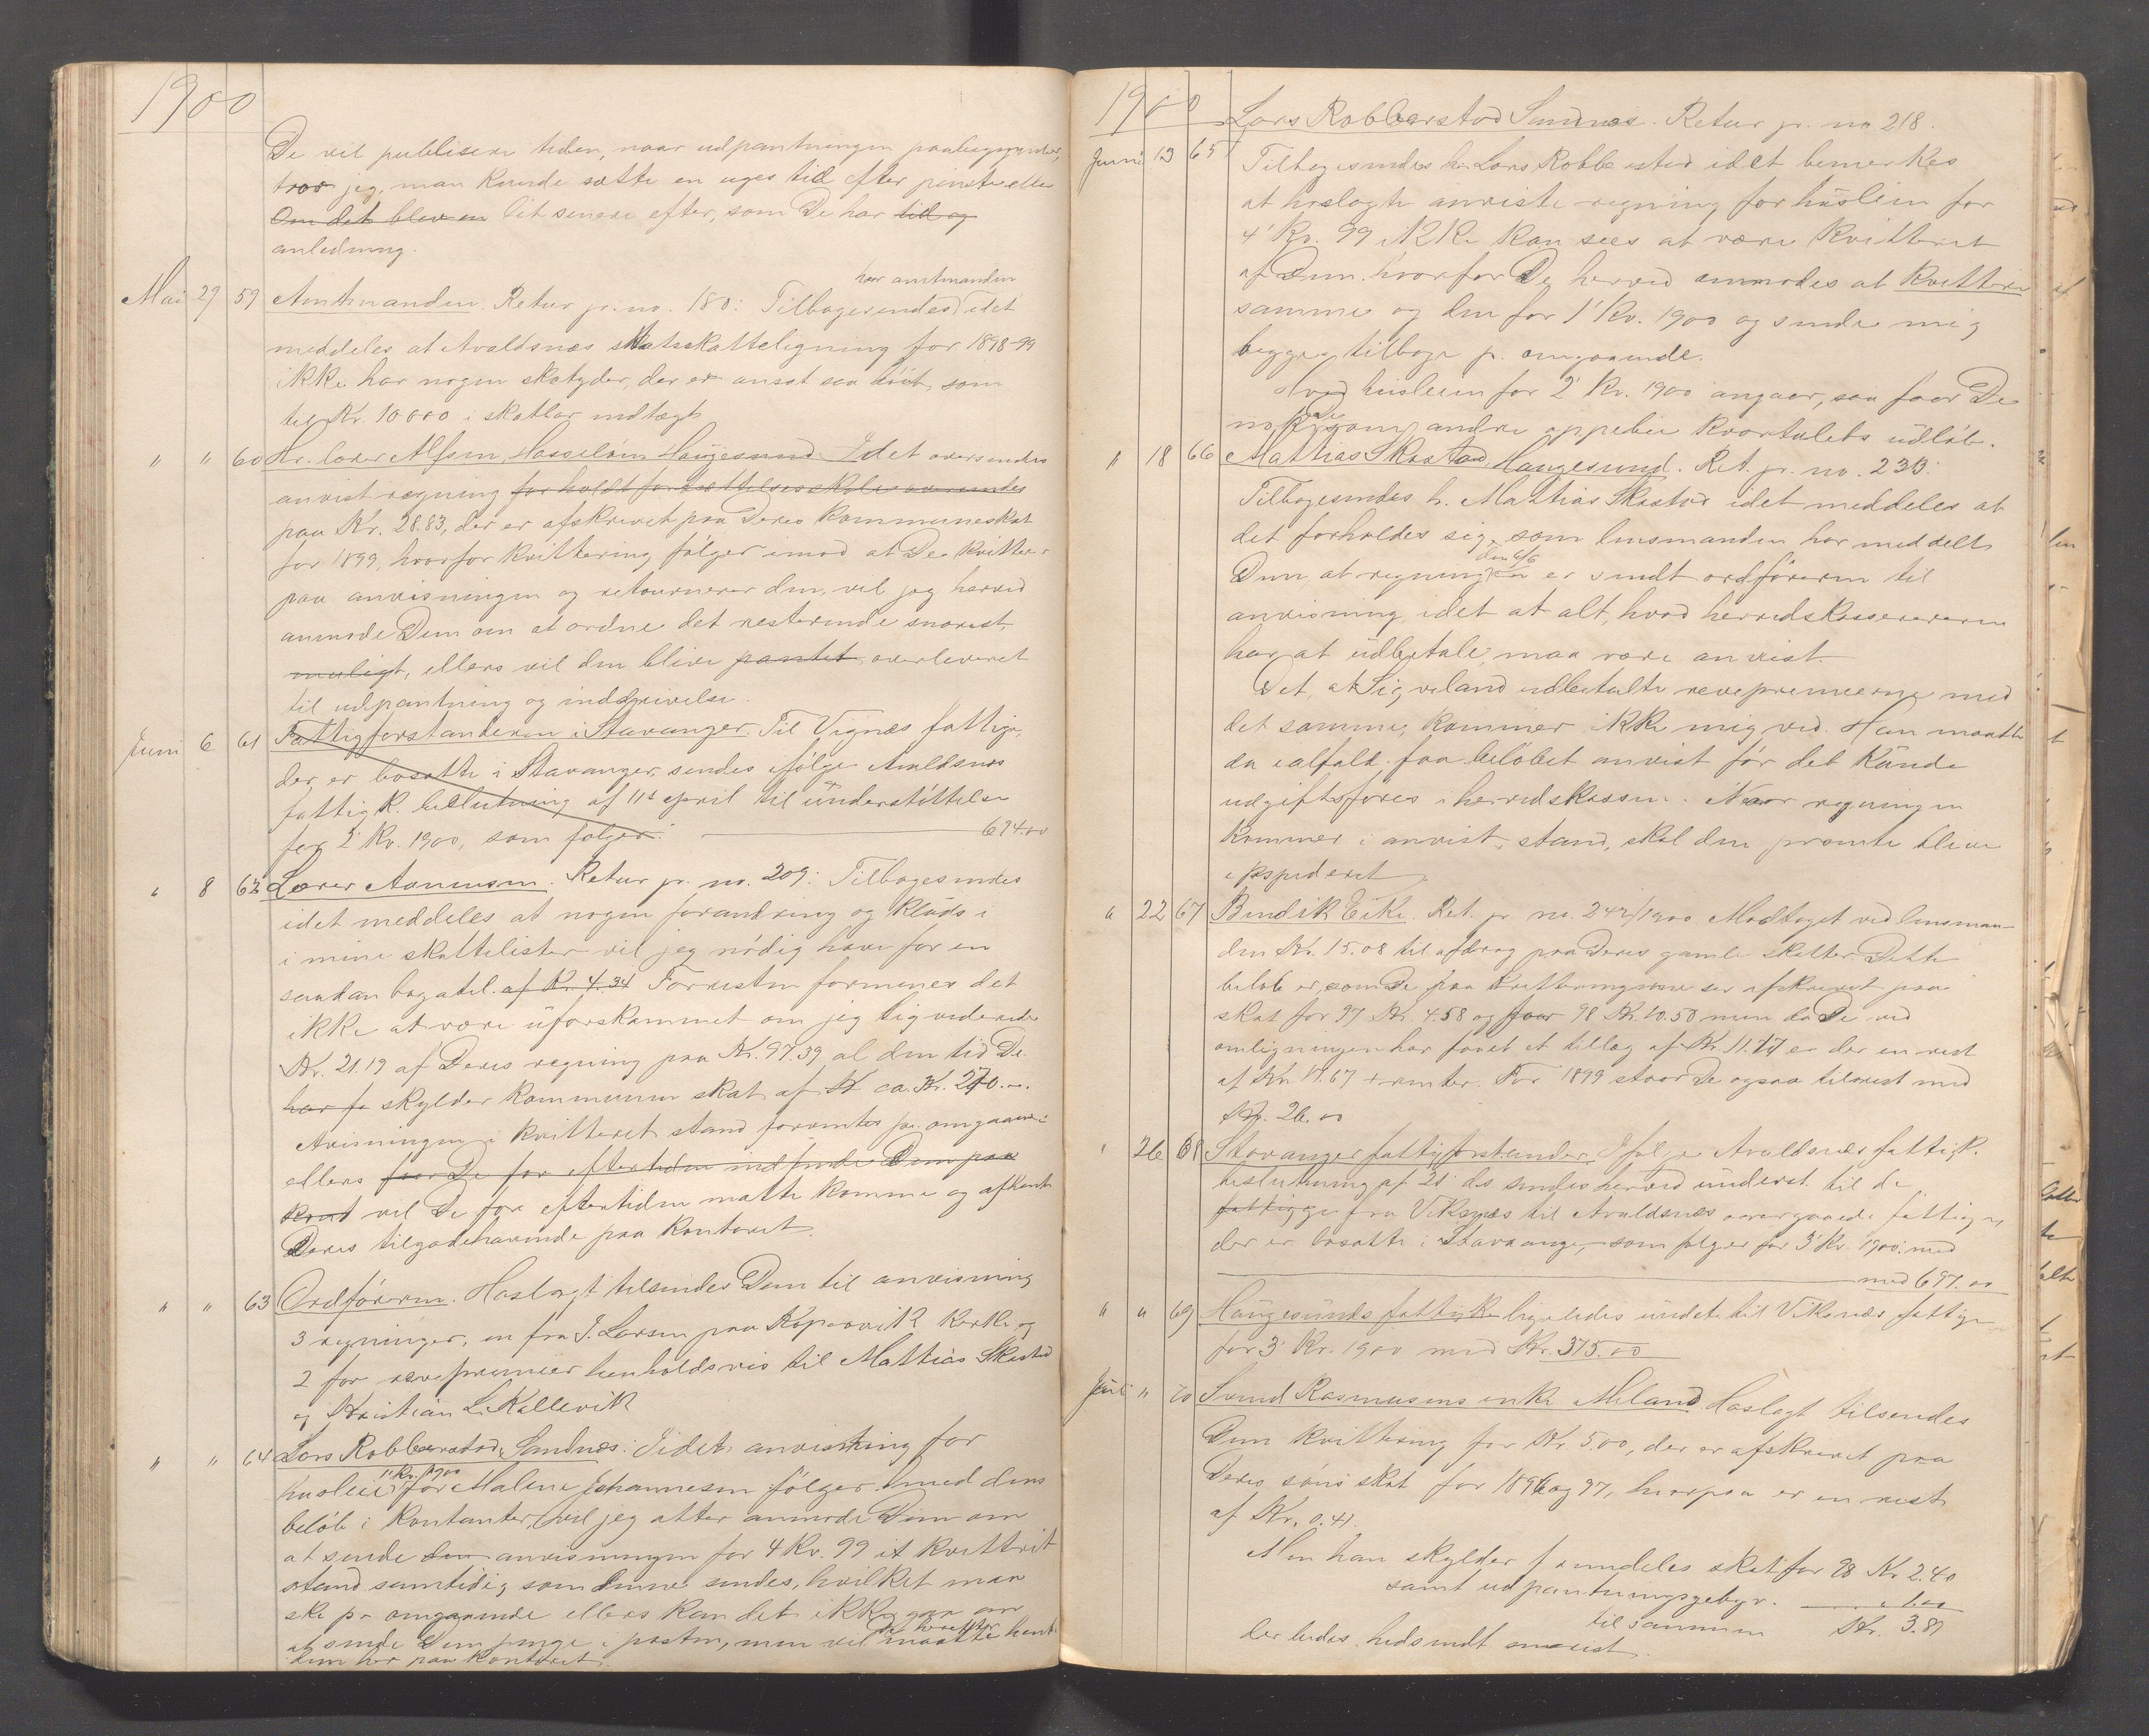 1900
De vil publisere tiden, naar udpantningen paabegynder,
tror jeg, man kunde sætte en uges tid efter pinste eller
Om det blev en lit senere efter, som De har tid og
anledning.
Mai 29 59 Amtmanden. Retur jr. no. 180: Tilbagesendes hr amtmanden idet
meddeles at Avaldsnes statsskatteligning for 1898-99
ikke har nogen skatyder, der er ansat saa høit som
til Kr. 10000 i skatbar indtægt
" " 60 Hr. lærer Alfsen, Hasseløen Haugesund. Idet oversendes
anvist regning for holdt fortsættelsesskole oversendes
paa Kr. 28.83, der er afskrevet paa Deres kommuneskat
for 1899, hvorfor kvittering følger imod at De kvitterer
paa anvisningen og retournerer den, vil jeg herved
anmode Dem om at ordne det resterende snarest
muligt, ellers vil den blive pantet overleveret
til udpantning og inddrivelse
Juni 6 61 Fattigforstanderen i Stavanger. Til Vignæs fattige,
der er bosatte i Stavanger, sendes ifølge Avaldsnæs
fattigk. beslutning af 11te april til understøttelse
for 2' Kv. 1900, som følger: 694.00
" 8 62 Lærer Aanensen. Retur jr. no. 209: Tilbagesendes
idet meddeles at nogen forandring og kluds i
i mine skattelister vil jeg nødig have for en
saadan bagatel. af Kr. 4.34 Forresten formener det
ikke at være uforskammet om jeg ligviderede
Kr. 21.19 af Deres regning paa Kr. 97.39 al den tid De
har fo skylder kommunen skat af K ca. Kr. 270.-.
Avisningen i kvitteret stand forventes pr. omgaaende
ellers faar De for eftertiden indfinde Dem paa
kont vil De for eftertiden matte komme og afhente
Deres tilgodehavende paa kontoret.
" " 63 Ordføreren. Hoslagt tilsendes Dem til anvisning
3 regninger, en fra J. Larsen paa Kopervik kirke og
2 for rævepremier henholdsvis til Mattias Skastad
og Kristian L. Kallevik
" " 64 Lars Robberstad, Sandnes: Idet anvisning for
husleie 1' Kv. 1900 for Malene Johannesen følger hmed dens
beløb i kontanter, vil jeg atter anmode Dem om
at sende den anvisningen for 4 Kv. 99 it kvitterit
stand samtidig som denne sendes, hvilket maa
ske pr omgaaende ellers kan det ikke gaa an
at sende Dem penge i posten, men vil De herefter maatte hente
dem her paa kontoret.
1900
Lars Robberstad Sandnæs. Retur jr. no 218.
Juni 13 65 Tilbagesendes hr. Lars Robberstad idet bemerkes
at hoslagte anviste regning for husleien for
4' Kv. 99 ikke kan sees at være kvitteret
af Dem. hvorfor De herved anmodes at kvittere
samme og den for 1' Kv. 1900 og sende mig
begge tilbage p. omgaaende.
Hvad husleien for 2' Kv. 1900 angaar, saa faar De
nok som andre oppebie kvartalets udløb.
" 18 66 Mattias Skastad, Haugesund. Ret. jr. no. 230:
Tilbagesendes hr. Mattias Skastad idet meddeles at
det forholdes sig, som lensmanden har meddelt
Dem, at regningen den 6/6 er sendt ordføreren til
anvisning, idet at alt, hvad herredskassereren
har at udbetale, maa være anvist.
Det, at Sigveland udbetalte rævepremierne med
det samme, kommer ikke mig ved. Han maatte
da ialfald faa beløbet anvist før det kunde
udgiftsføres i herredskassen. Naar regningen
kommer i anvist stand, skal den promte blive
expederet
" 22 67 Bendik Eike. Ret. jr no. 242/1900. Modtaget ved lensman-
den Kr. 15.08 til afdrag paa Deres gamle skatter. Dette
beløb er, som De paa kvitteringerne ser afskrevet paa
skat for 97 Kr. 4.58 og for 98 Kr. 10.50 men da De ved
omligningen har faaet et tillæg af Kr. 11.77 er der en rest
af Kr. 17.67 + renter. For 1899 staar De ogsaa tilrest med
Kr. 26.00
" 26 68 Stavanger fattigforstander. Ifølge Avaldsnæs fattigk.
beslutning af 25 ds sendes herved underst. til de
fattige fra Viksnæs til Avaldsnæs overgaaede fattige,
der er bosatte i Stavanger, som følger for 3' Kv. 1900. med
med 697.00
" " 69 Haugesunds fattigk. ligeledes underst. til Viksnæs fattige
for 3' Kv. 1900 med Kr. 375.00
Juli " 70 Svend Rasmusens enke Meland. Hoslagt tilsendes
Dem kvittering for Kr 5.00, der er afskrevet paa
Deres søns skat for 1896 og 97, hvorpaa er en rest
af Kr. 0.41.
Men han skylder fremdeles skat for 98 Kr 2.40
samt udpantningsgebyr. " 1.00
til sammen Kr. 3.81
der bedes hidsendt snarest.